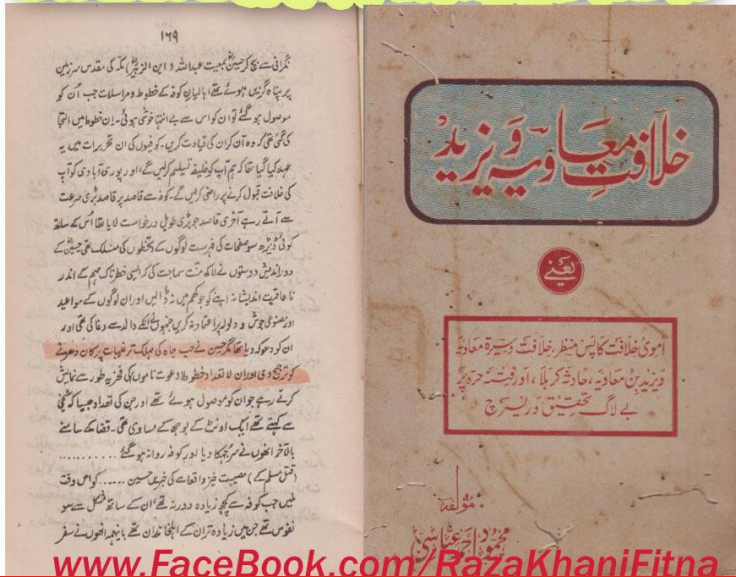 ۱۶۹
نگرانی سے بچ کر حسینؓ (بمعیت عبداللہ (ابن الزبیرؓ) مکہ کی مقدس سرزمین
پر پناہ گزیں ہوئے تھے اہالیانِ کوفہ کے خطوط و مراسلات جب اُن کو
موصول ہو گئے تو ان کو اس سے بے انتہا خوشی ہوئی۔ اِن خطوط میں التجا
کی گئی تھی کہ وہ آن کر ان کی قیادت کریں۔ کوفیوں کی ان تحریرات میں یہ
عہد کیا گیا تھا کہ ہم آپ کو خلیفہ تسلیم کرلیں گے اور پوری آبادی کو آپ
کی خلافت قبول کرنے پر راضی کرلیں گے۔ کوفہ سے قاصد پر قاصد بڑی سرعت
سے آتے رہے آخری قاصد جو بڑی طویل درخواست لایا تھا اُس کے ساتھ
کوئی ڈیڑھ سو صفحات کی فہرست لوگوں کے دستخطوں کی منسلک تھی حسینؓ کے
دور اندیش دوستوں نے لاکھ منت سماجت کی کہ ایسی خطرناک مہم کے اندر
نا عاقبت اندیشانہ اپنے کو جوکھم میں نہ ڈالیں اور ان لوگوں کے مواعید
اور مصنوعی جوش و ولولہ پر اعتماد نہ کریں جنہوں نے انکے والد سے دغا کی تھی اور
ان کو دھوکہ دیا تھا مگر حسین نے حب جاہ کی مہلک ترغیبات پر کان دھرنے
کو ترجیح دی اور ان لاتعداد خطوط (دعوت ناموں) کی فخریہ طور سے نمائش
کرتے رہے جو ان کو موصول ہوئے تھے اور جن کی تعداد جیسا کہ شیخی
سے کہتے تھے ایک اونٹ کے بوجھ کے مساوی تھی۔ قضا کے سامنے
بالآخر انھوں نے سر جھکا دیا اور کوفہ روانہ ہو گئے ..........
(قتل مسلم کے) مصیبت خیز واقعات کی خبریں حسین ...... کو اس وقت
ملیں جب کوفہ سے کچھ زیادہ دور نہ تھے ان کے ساتھ مشکل سے سو
نفوس تھے جن میں زیادہ تر ان کے اہلخاندان تھے بایںہمہ انھوں نے سفر
خلافتِ معاویہؓ و یزیدؒ
یعنے
اموی خلافت کا پس منظر، خلافت و سیرۃ معاویہؓ
و یزید بن معاویہؓ، حادثہ کربلا، اور فتنہ حرہ پر
بے لاگ تحقیق و ریسرچ
مؤلفہ
محمود احمد عباسی
www.FaceBook.com/RazaKhaniFitna